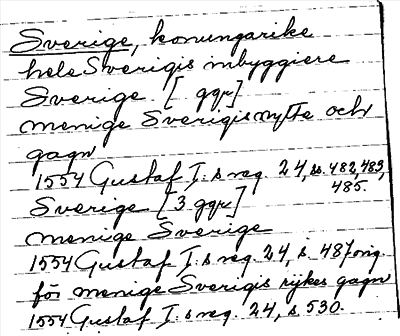 Sverige, konungarike
hele Sverigis inbyggiere
Sverige [ ggr]
menige Sverigis nytte och
gagn
1554 Gustaf I:s reg. 24, ss. 482, 483,
485.
Sverige [3 ggr]
menige Sverige
1554 Gustaf I:s reg. 24, s. 487 orig.
för menige Sverigis rijkes gagn
1554 Gustaf I:s reg. 24, s 530.